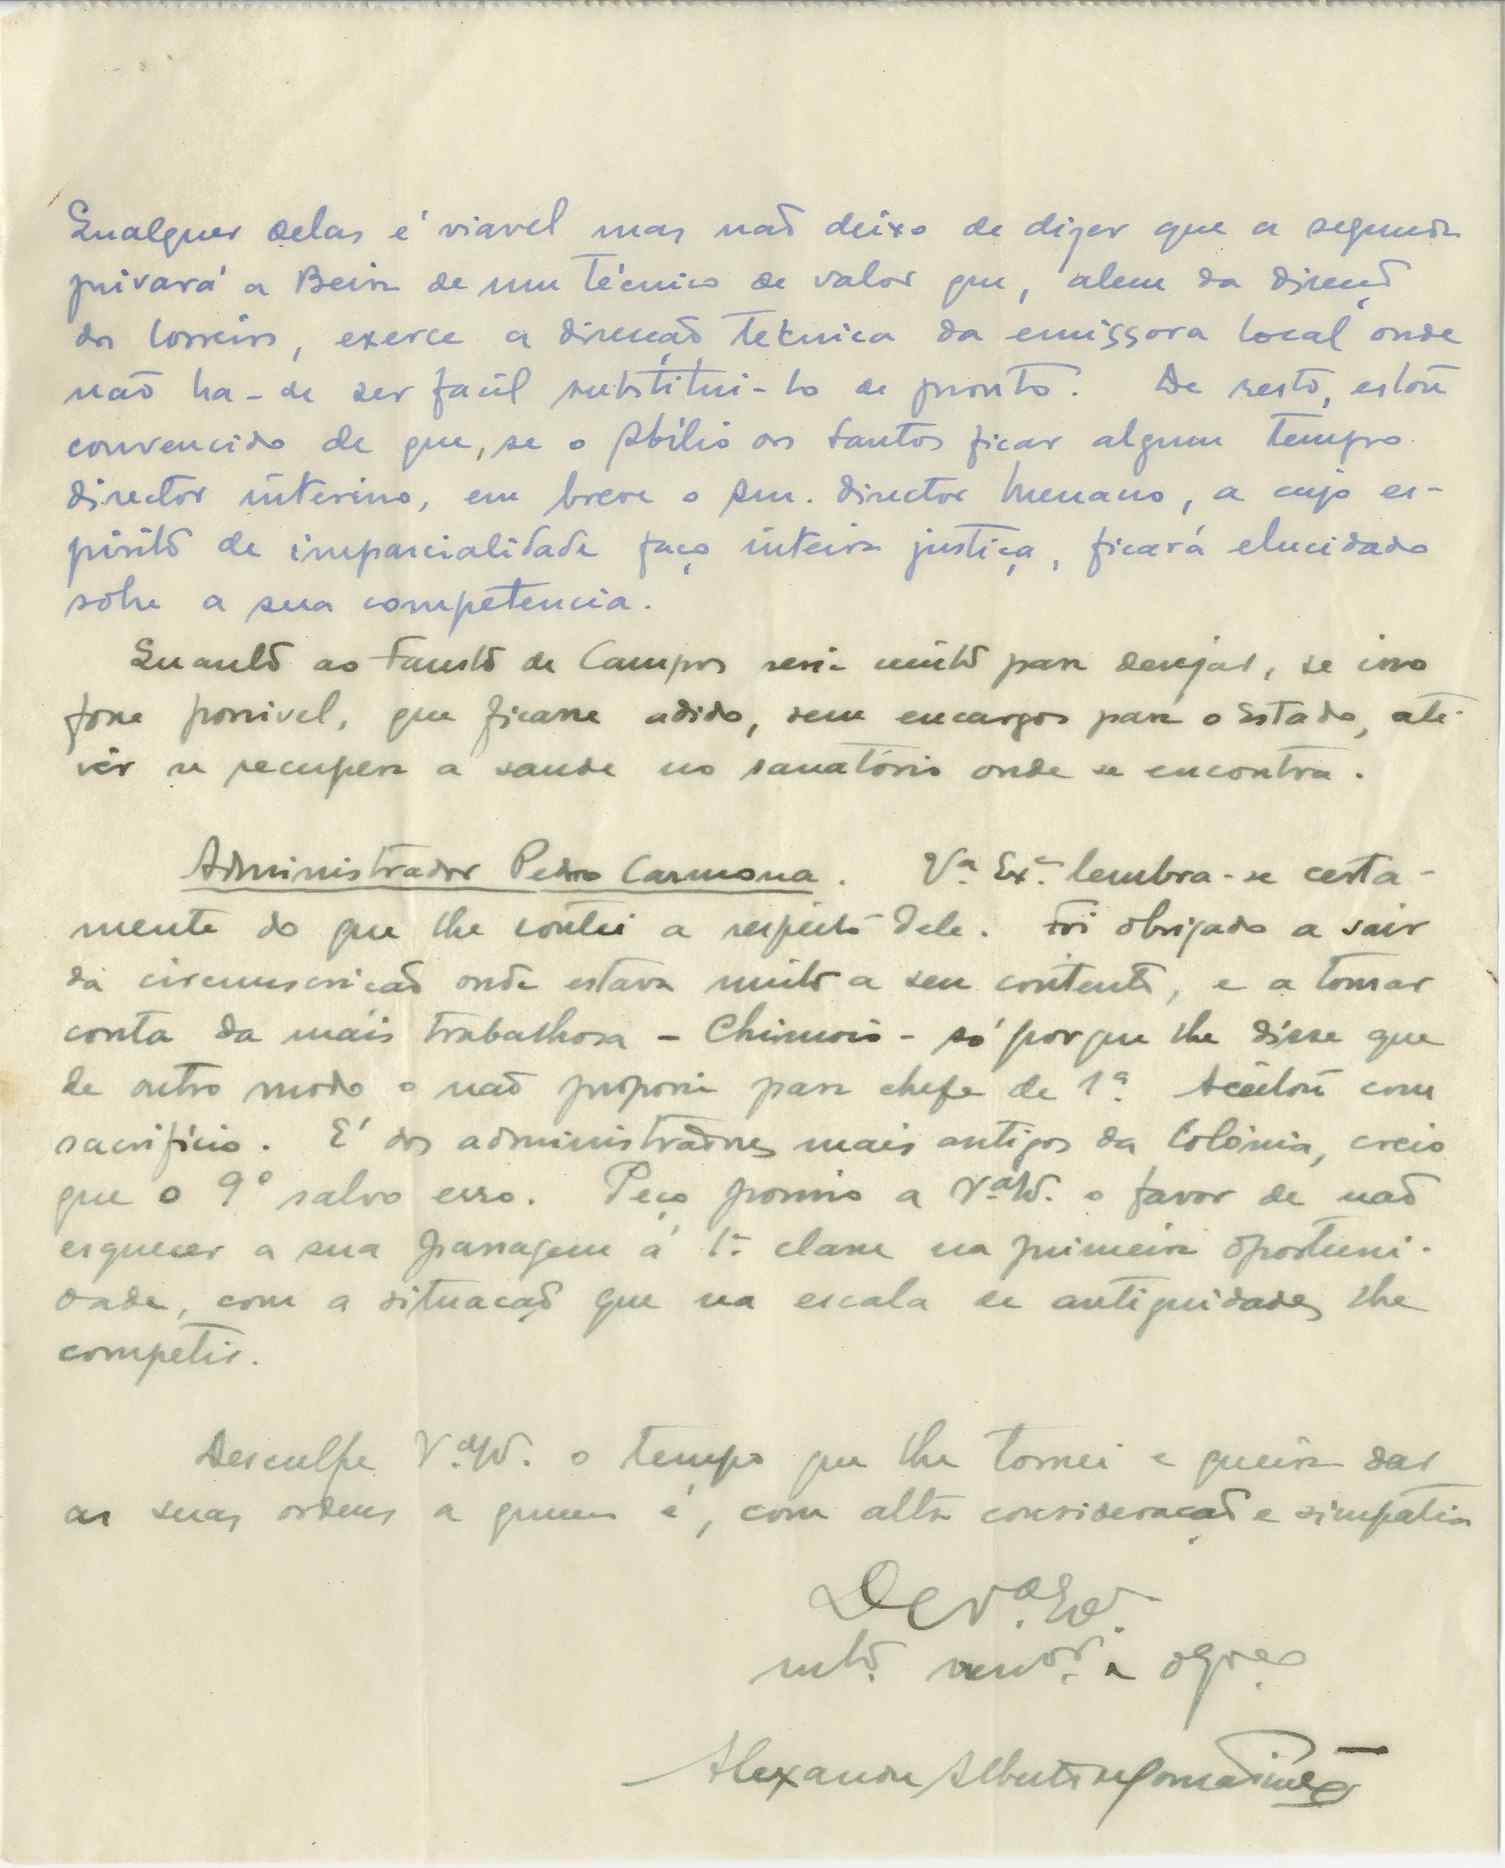 Qualquer delas é viavel mas não deixo de dizer que a segunda
privará a Beira de um técnico de valor que, alem da direcção
dos Correios, exerce a direcção técnica da emissora local onde
não ha-de ser facil substitui-lo de pronto. De resto, estou
convencido de que, se o Abilio dos Santos ficar algum tempo
director interino, em breve o Snr. director Menano, a cujo es-
pirito de imparcialidade faço inteira justiça, ficará elucidado
sôbre a sua competencia.
Quanto ao Fausto de Campos seria muito para desejar, se isso
fosse possivel, que ficasse adido, sem encargos para o Estado, até
vêr se recupera a saude no sanatório onde se encontra.
Administrador Pedro Carmona. Vª. Exª. lembra-se certa-
mente do que lhe contei a respeito dele. Foi obrigado a sair
da circunscrição onde estava muito a seu contento, e a tomar
conta da mais trabalhosa - Chimoio - só porque lhe disse que
de outro modo o não proporia para chefe de 1ª. Aceitou com
sacrifício. É dos administradores mais antigos da Colónia, creio
que o 9º salvo erro. Peço por isso a Vª. Exª. o favor de não
esquecer a sua passagem á 1ª. classe na primeira oportuni-
dade, com a situação que na escala de antiguidades lhe
competir.
Desculpe Vª. Exª. o tempo que lhe tomei e queira dar
as suas ordens a quem é, com alta consideração e simpatia
De Vª. Exª.
mtº. venor. e obgdo.
Alexandre Alberto de